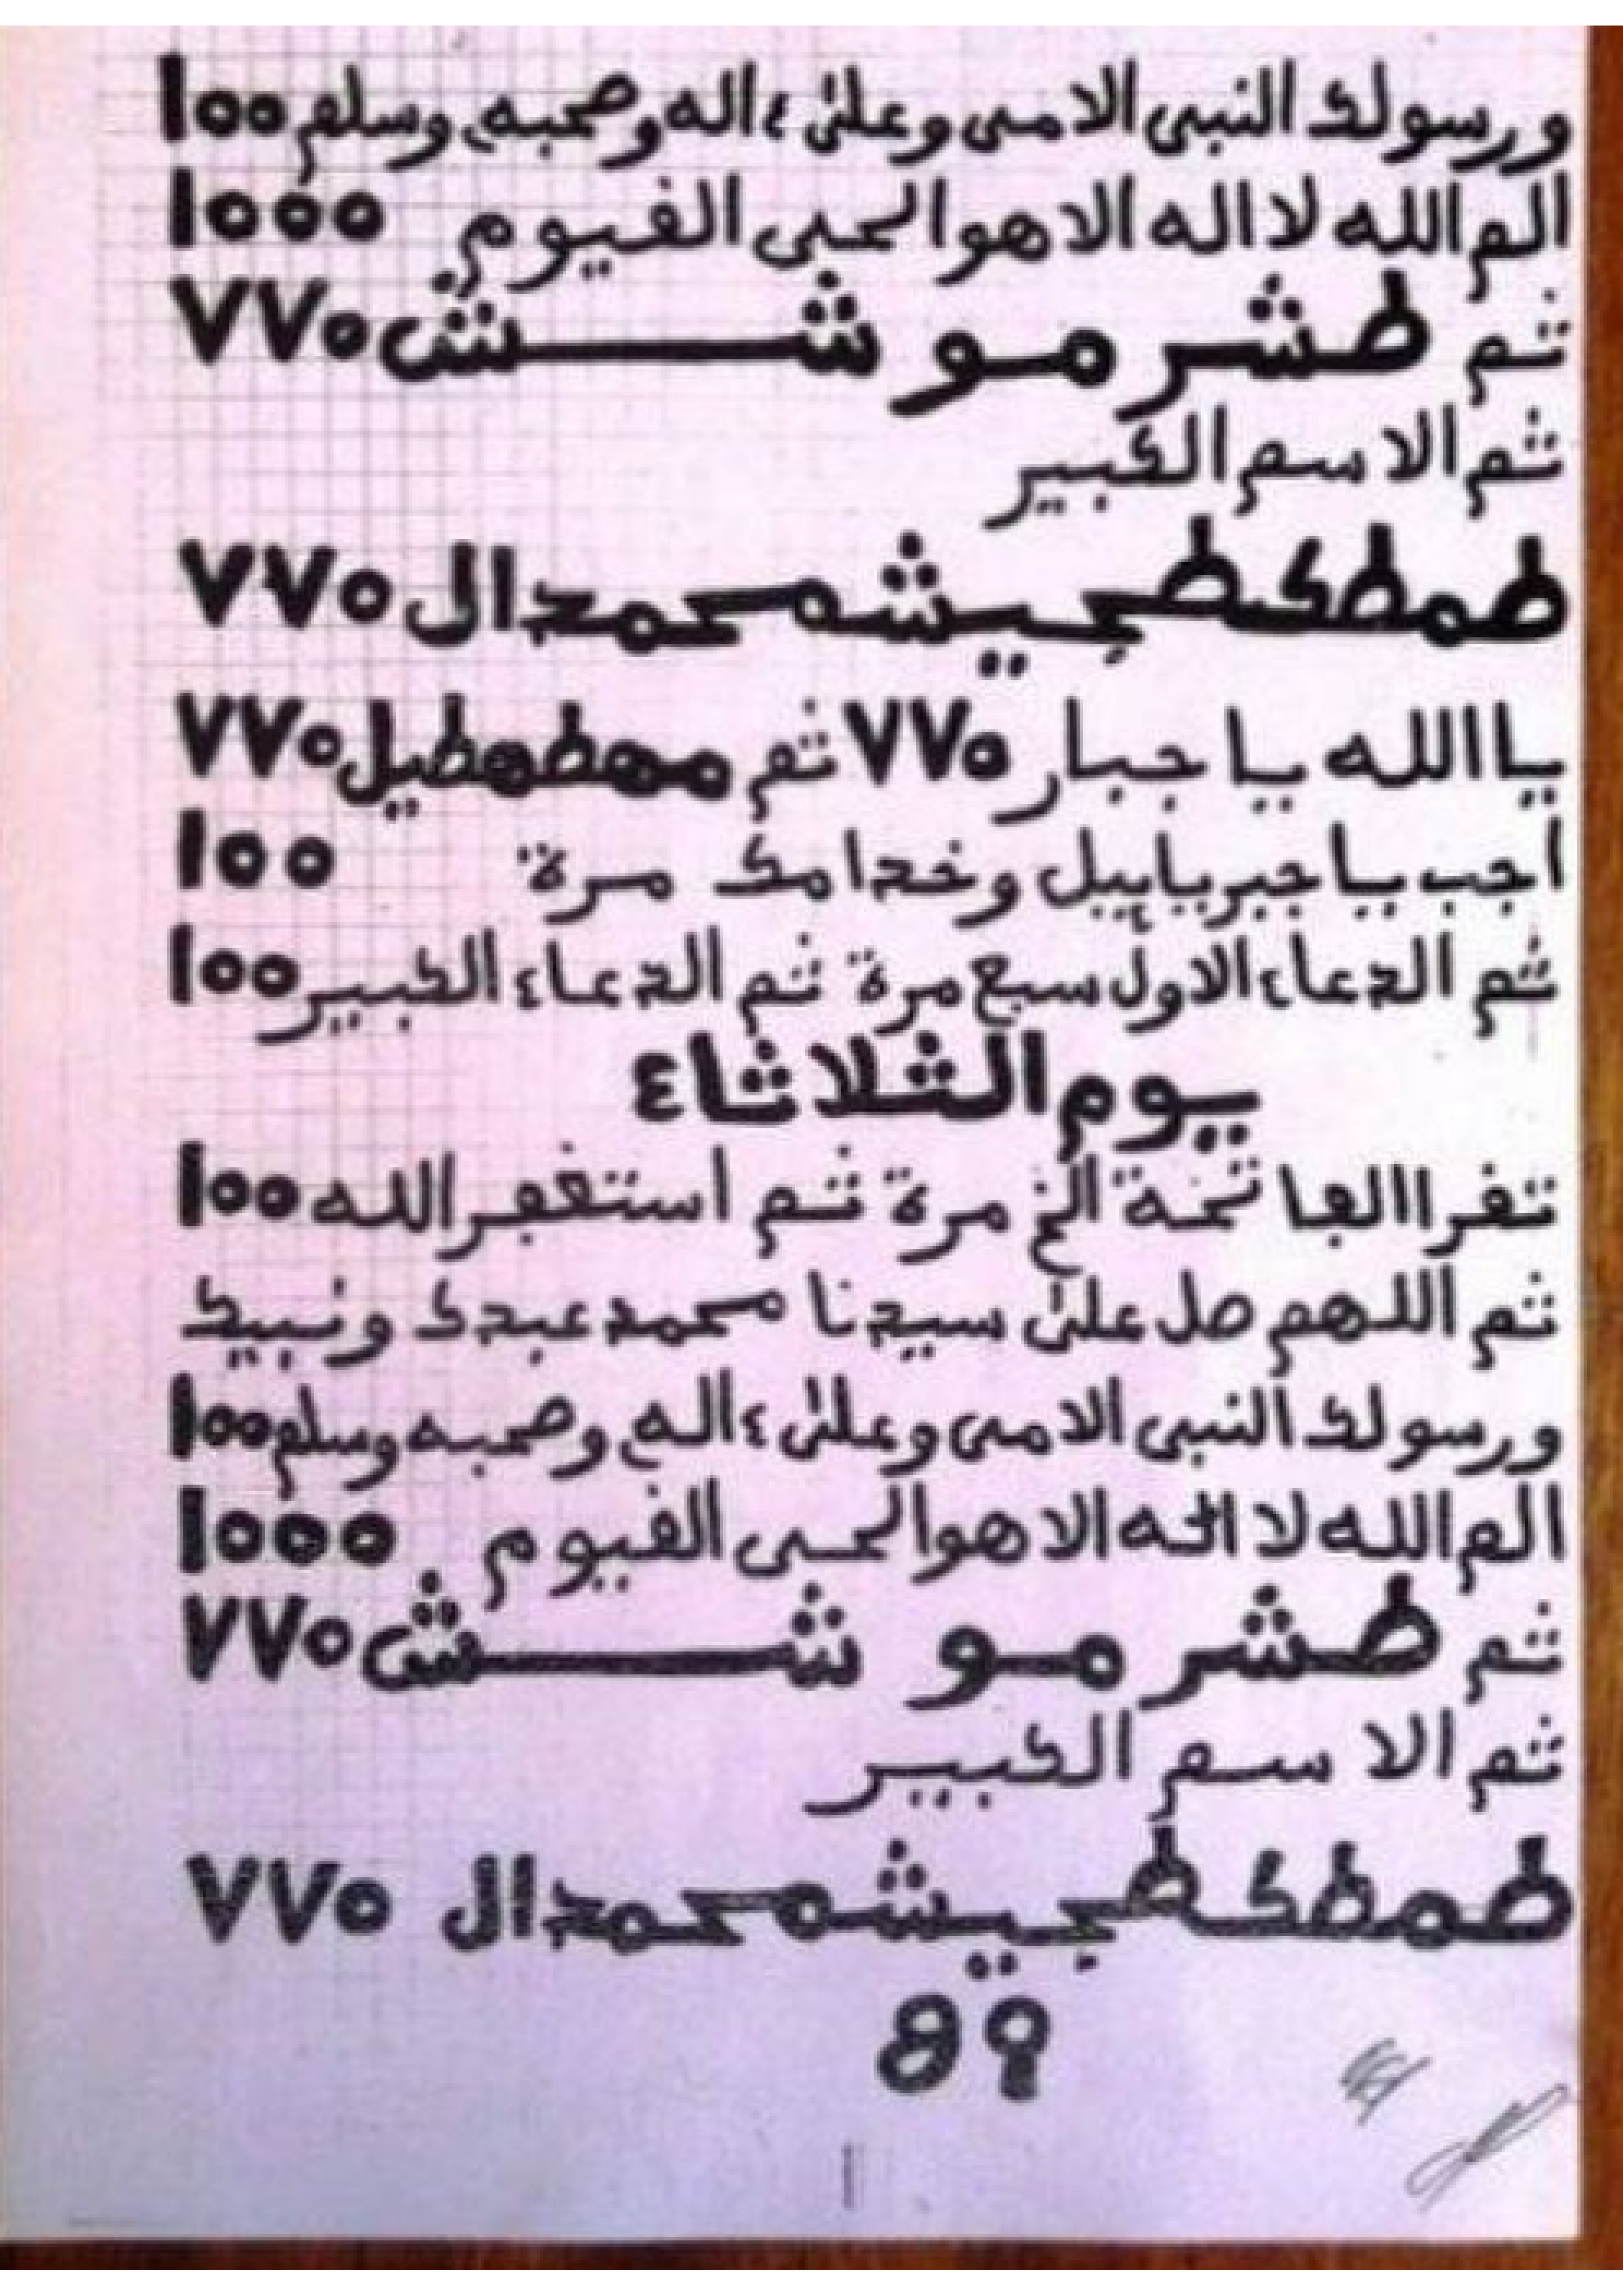 ورسولك النبي الامي وعلى ءاله وصحبه وسلم ١٠٠
الم الله لا اله الا هو الحي القيوم ١٠٠٠
ثم طشر مو شش ٧٧٥
ثم الا سم الكبير
طمطكطجيشمحمدال ٧٧٥
يا الله يا جبار ٧٧٥ ثم مهطهطيل ٧٧٥
اجب يا جبرياييل وخدامك مرة ١٠٠
ثم الدعاء الاول سبع مرة ثم الدعاء الكبير ١٠٠
يوم الثلاثاء
تقرا الفاتحة الخ مرة ثم استغفر الله ١٠٠
ثم اللهم صل على سيدنا محمد عبدك ونبيك
ورسولك النبي الامي وعلى ءاله وصحبه وسلم ١٠٠
الم الله لا اله الا هو الحي القيوم ١٠٠٠
ثم طشر مو شش ٧٧٥
ثم الا سم الكبير
طمطكطجيشمحمدال ٧٧٥